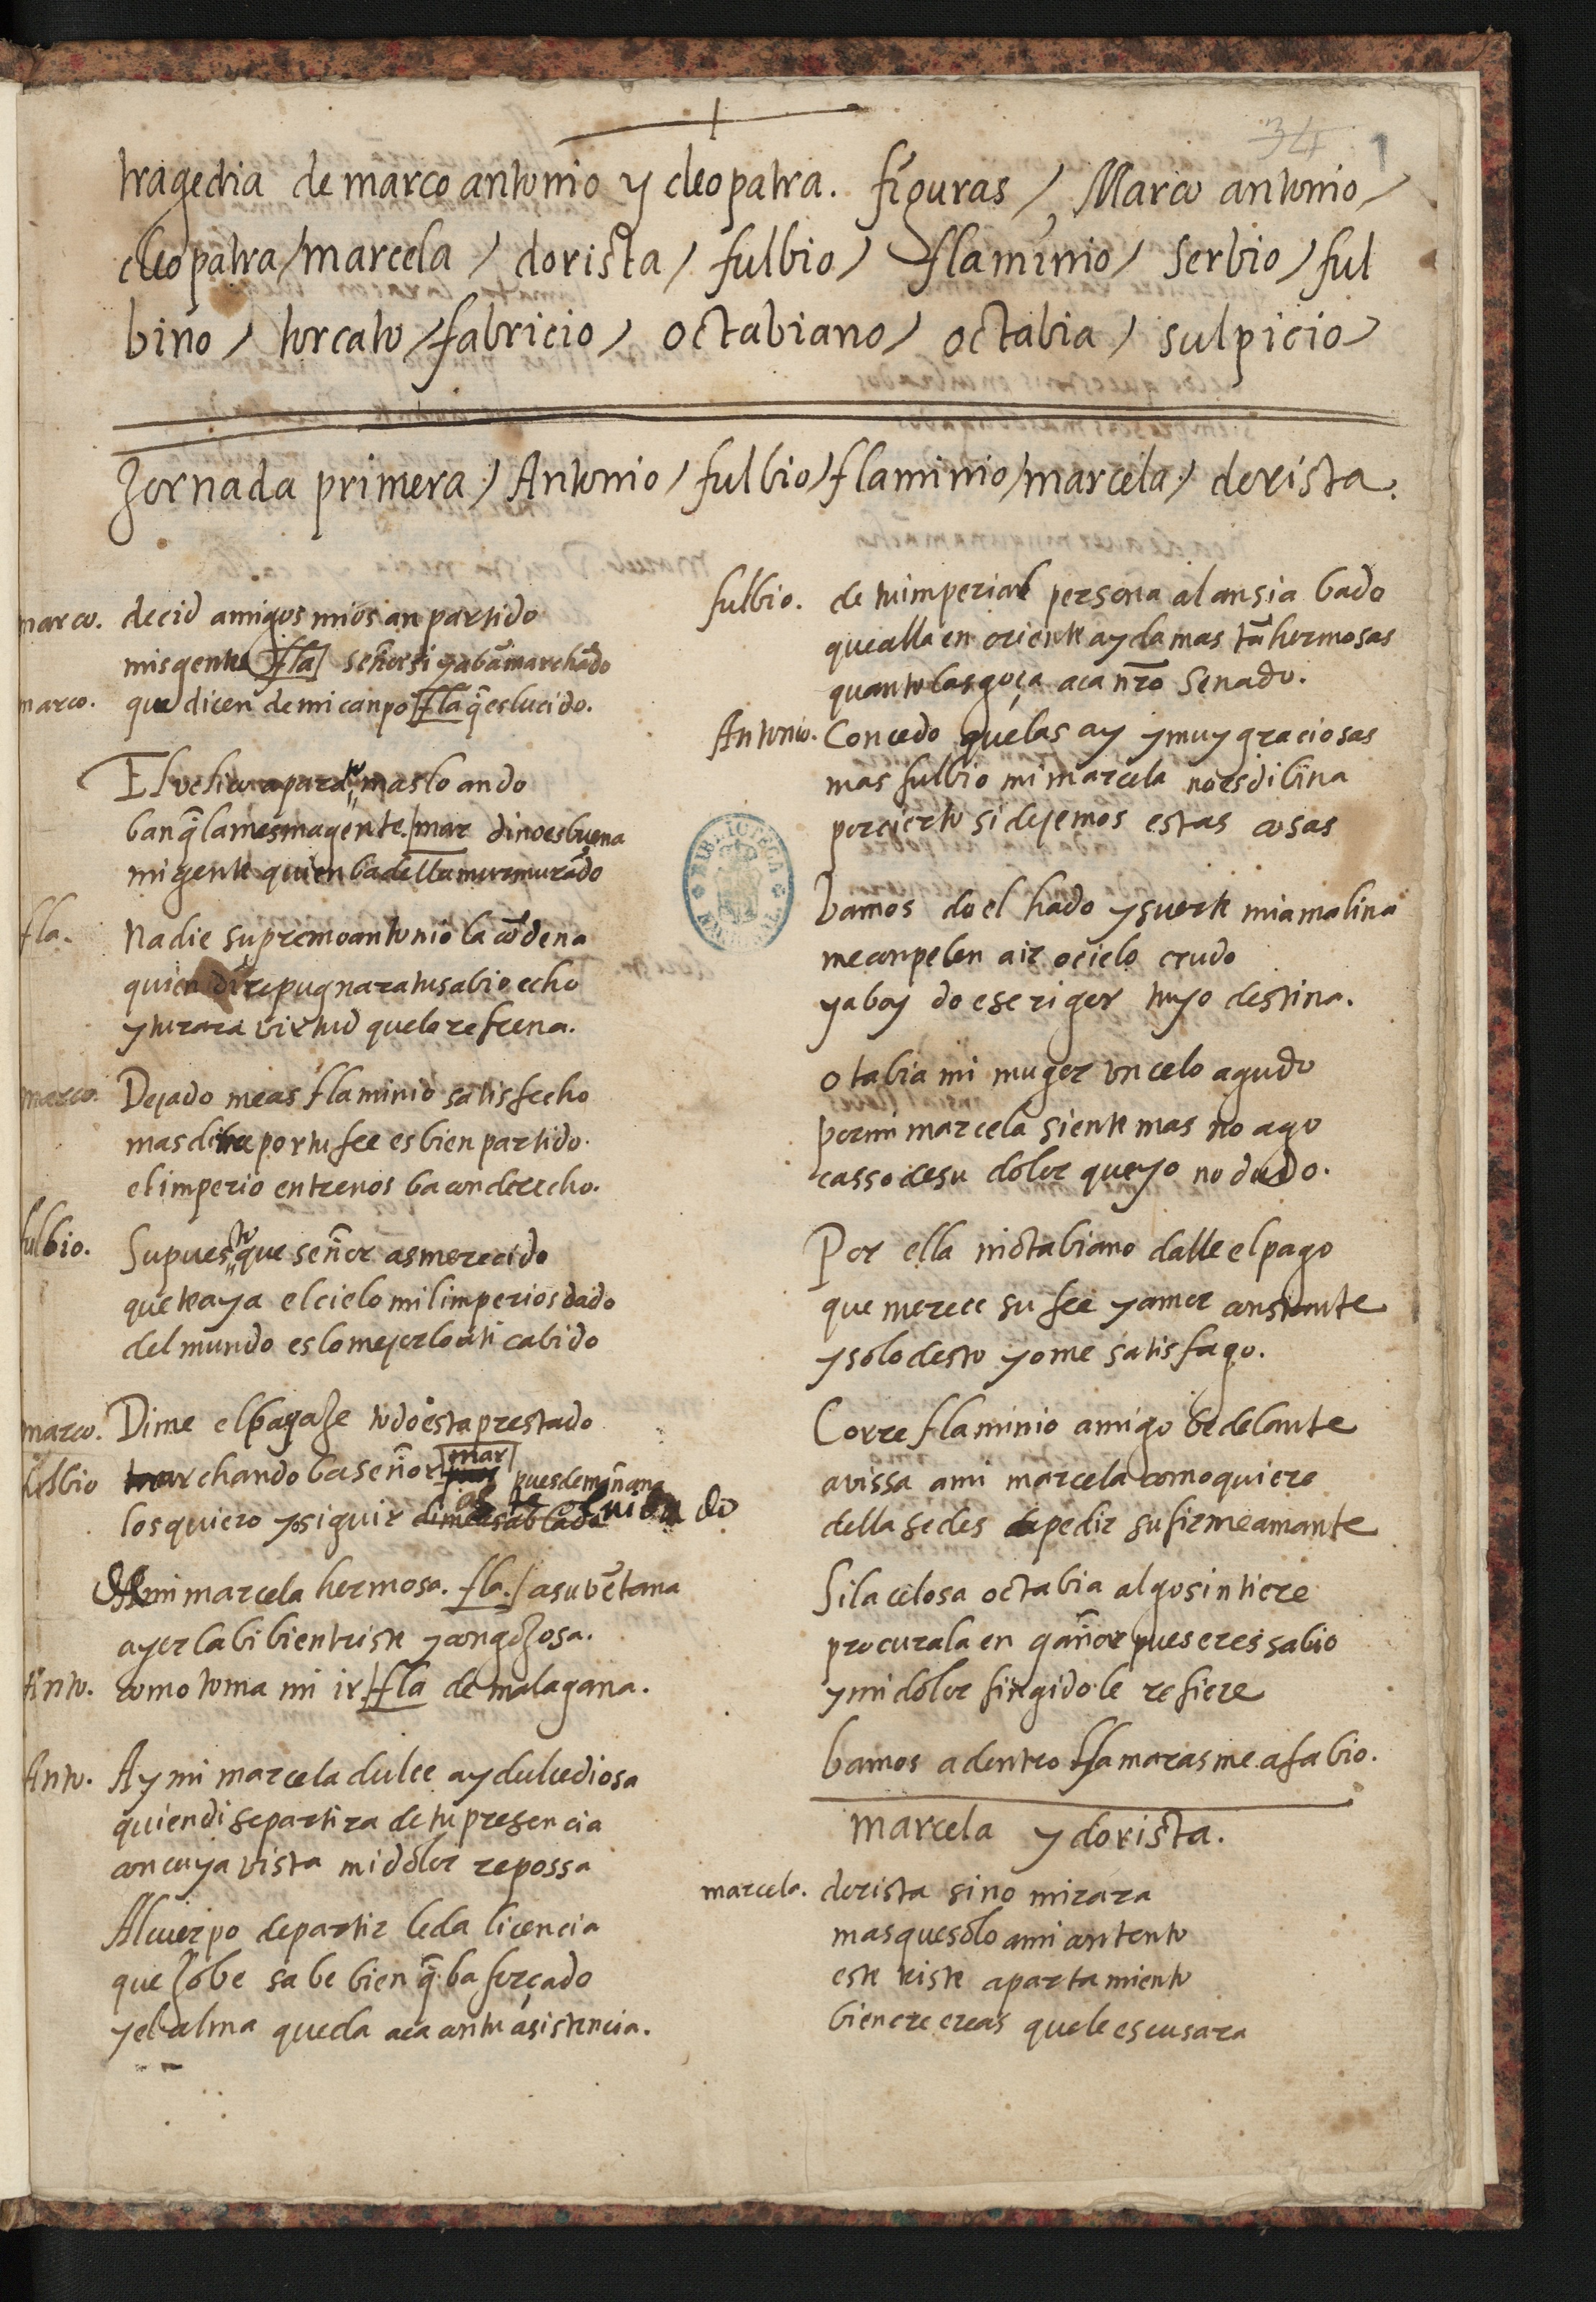 34 1
tragedia de marco antonio y cleopatra. figuras / Marco antonio /
cleopatra / marcela / dorista / fulbio / flaminio / serbio / ful
bino / torcato / fabricio / octabiano / octabia / sulpicio /
Jornada primera / Antonio / fulbio / flaminio / marcela / dorista.
marco. decid amigos mios an partido
mis gentes fla señor si ya bā marchādo
marco. que dicen de mi canpo fla q̄ es lucido.
El belico aparato mas loando
ban q̄ la mesma gente. mar di no es buena
mi gente quien ba della murmurādo
fla. Nadie supremo antonio la cōdena
quien di repugnara tu sabio echo
y tu rara virtud que lo refrena.
marco. Dejado me as flaminio satisfecho
mas dime por tu fee es bien partido.
el imperio entre nos ba con derecho.
fulbio. Supuesto que señor as merecido
que te aya el cielo mil imperios dado
del mundo es lo mejor lo a ti cabido
marco. Dime el bagaje todo esta prestado
fulbio marchando ba señor mar pues de mañana
los quiero yo siguir
mi marcela hermosa. fla. a su bētana
ayer la bi bien triste y congojosa.
Anto. como toma mi ir fla de mala gana.
Anto. Ay mi marcela dulce ay dulce diosa
quien di se partira de tu presencia
con cuya vista mi dolor repossa
Al cuerpo de partir le da licencia
que Jobe sabe bien q̄ ba forçado
y el alma queda aca con tu asistencia.
fulbio. de tu imperial persona al ansia bado
que alla en oriente ay damas tā hermosas
quanto las goça aca nr̄o Senado.
Antonio. Concedo que las ay y muy graciosas
mas fulbio mi marcela no es dibina
por cierto si dejemos estas cosas
bamos do el hado y suerte mia malina
me conpelen a ir o cielo crudo
ya boy do ese rigor tuyo destina.
otabia mi muger vn celo agudo
por mi marcela siente mas no ago
casso de su dolor que yo no dudo.
Por ella ni octabiano dalle el pago
que merece su fee y amor constante
y solo desto yo me satisfago.
Corre flaminio amigo be delante
avissa a mi marcela como quiere
della se des pedir su firme amante
Si la celosa octabia algo sintiere
procurala engañar pues eres sabio
y mi dolor fingido le refiere
bamos adentro llamaras me a fabio.
marcela y dorista.
marcela. dorista si no mirara
mas que solo a mi contento
este triste apartamiento
bien cre creas que le escusara
BIBLIOTECA